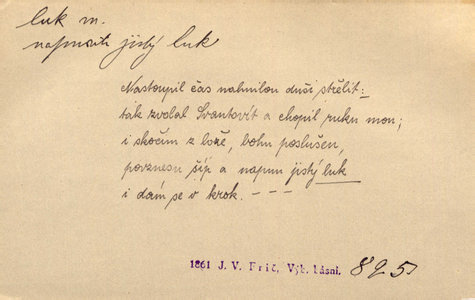 luk m.
napnouti jistý luk
Nastoupil čas na milou duši střelit:
tak zvolal Svantovít a chopil ruku mou;
i skočím z lože, bohu poslušen,
povznesu šíp a napnu jistý luk
i dám se v krok. – – –
1861 J. V. Frič, Výb. básní. 825